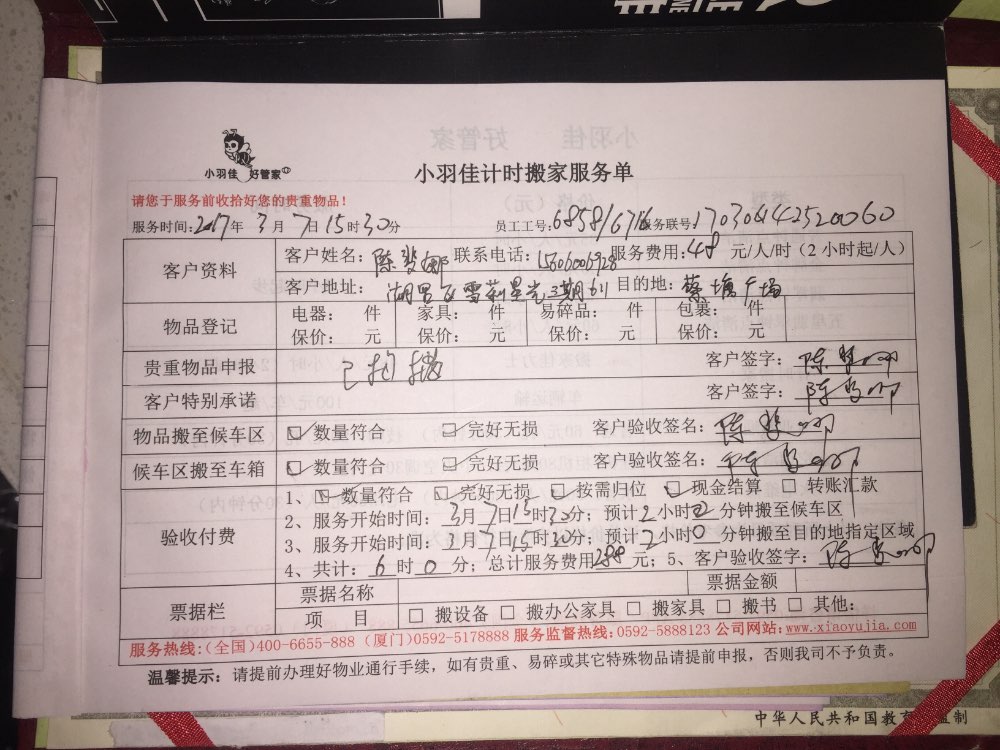 小羽佳 好管家
小羽佳计时搬家服务单
请您于服务前收拾好您的贵重物品！
服务时间：2017年 3月 7日 15时 30分 员工工号：6858/6716 服务联号：
客户资料 客户姓名：陈斐娜 联系电话：15606006928 服务费用：48 元/人/时（2小时起/人）
客户地址：湖里区雪莉星光三期611 目的地：蔡塘广场
物品登记 电器： 件 家具： 件 易碎品： 件 包裹： 件
保价： 元 保价： 元 保价： 元 保价： 元
贵重物品申报 已拍 客户签字：陈斐娜
客户特别承诺 客户签字：陈斐娜
物品搬至候车区 数量符合 完好无损 客户验收签名：陈斐娜
候车区搬至车箱 数量符合 完好无损 客户验收签名：陈斐娜
验收付费 1、数量符合 完好无损 按需归位 现金结算 转账汇款
2、服务开始时间：3月7日15时30分；预计2小时 分钟搬至候车区
3、服务开始时间：3月7日15时30分；预计2小时0 分钟搬至目的地指定区域
4、共计：6 时 0 分；总计服务费用288元；5、客户验收签字：陈斐娜
票据栏 票据名称 票据金额
项 目 搬设备 搬办公家具 搬家具 搬书 其他：
服务热线：（全国）400-6655-888（厦门）0592-5178888 服务监督热线：0592-5888123 公司网站：www.xiaoyujia.com
温馨提示：请提前办理好物业通行手续，如有贵重、易碎或其它特殊物品请提前申报，否则我司不予负责。
中华人民共和国教育 监制